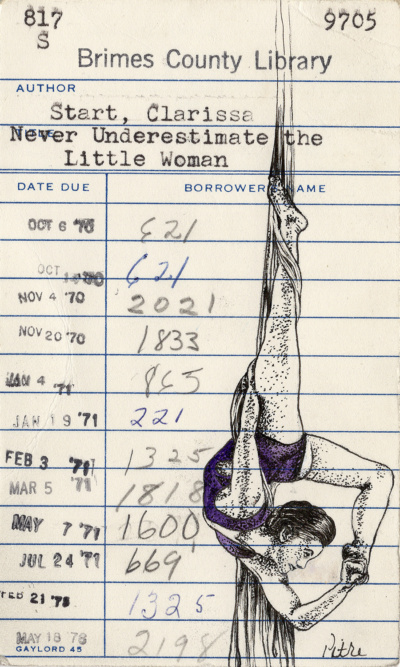 817 9705
S
Brimes County Library
AUTHOR
Start, Clarissa
Never Underestimate the
Little Woman
DATE DUE BORROWER NAME
OCT 6 '70 621
OCT 621
NOV 4 '70 2021
NOV 20 '70 1833
JAN 4 '71 865
JAN 19 '71 221
FEB 3 '71 1325
MAR 5 '71 1818
MAY 7 '71 1600
JUL 24 '71 669
FEB 21 1325
MAY 18 78 2198
GAYLORD 45 Pitre